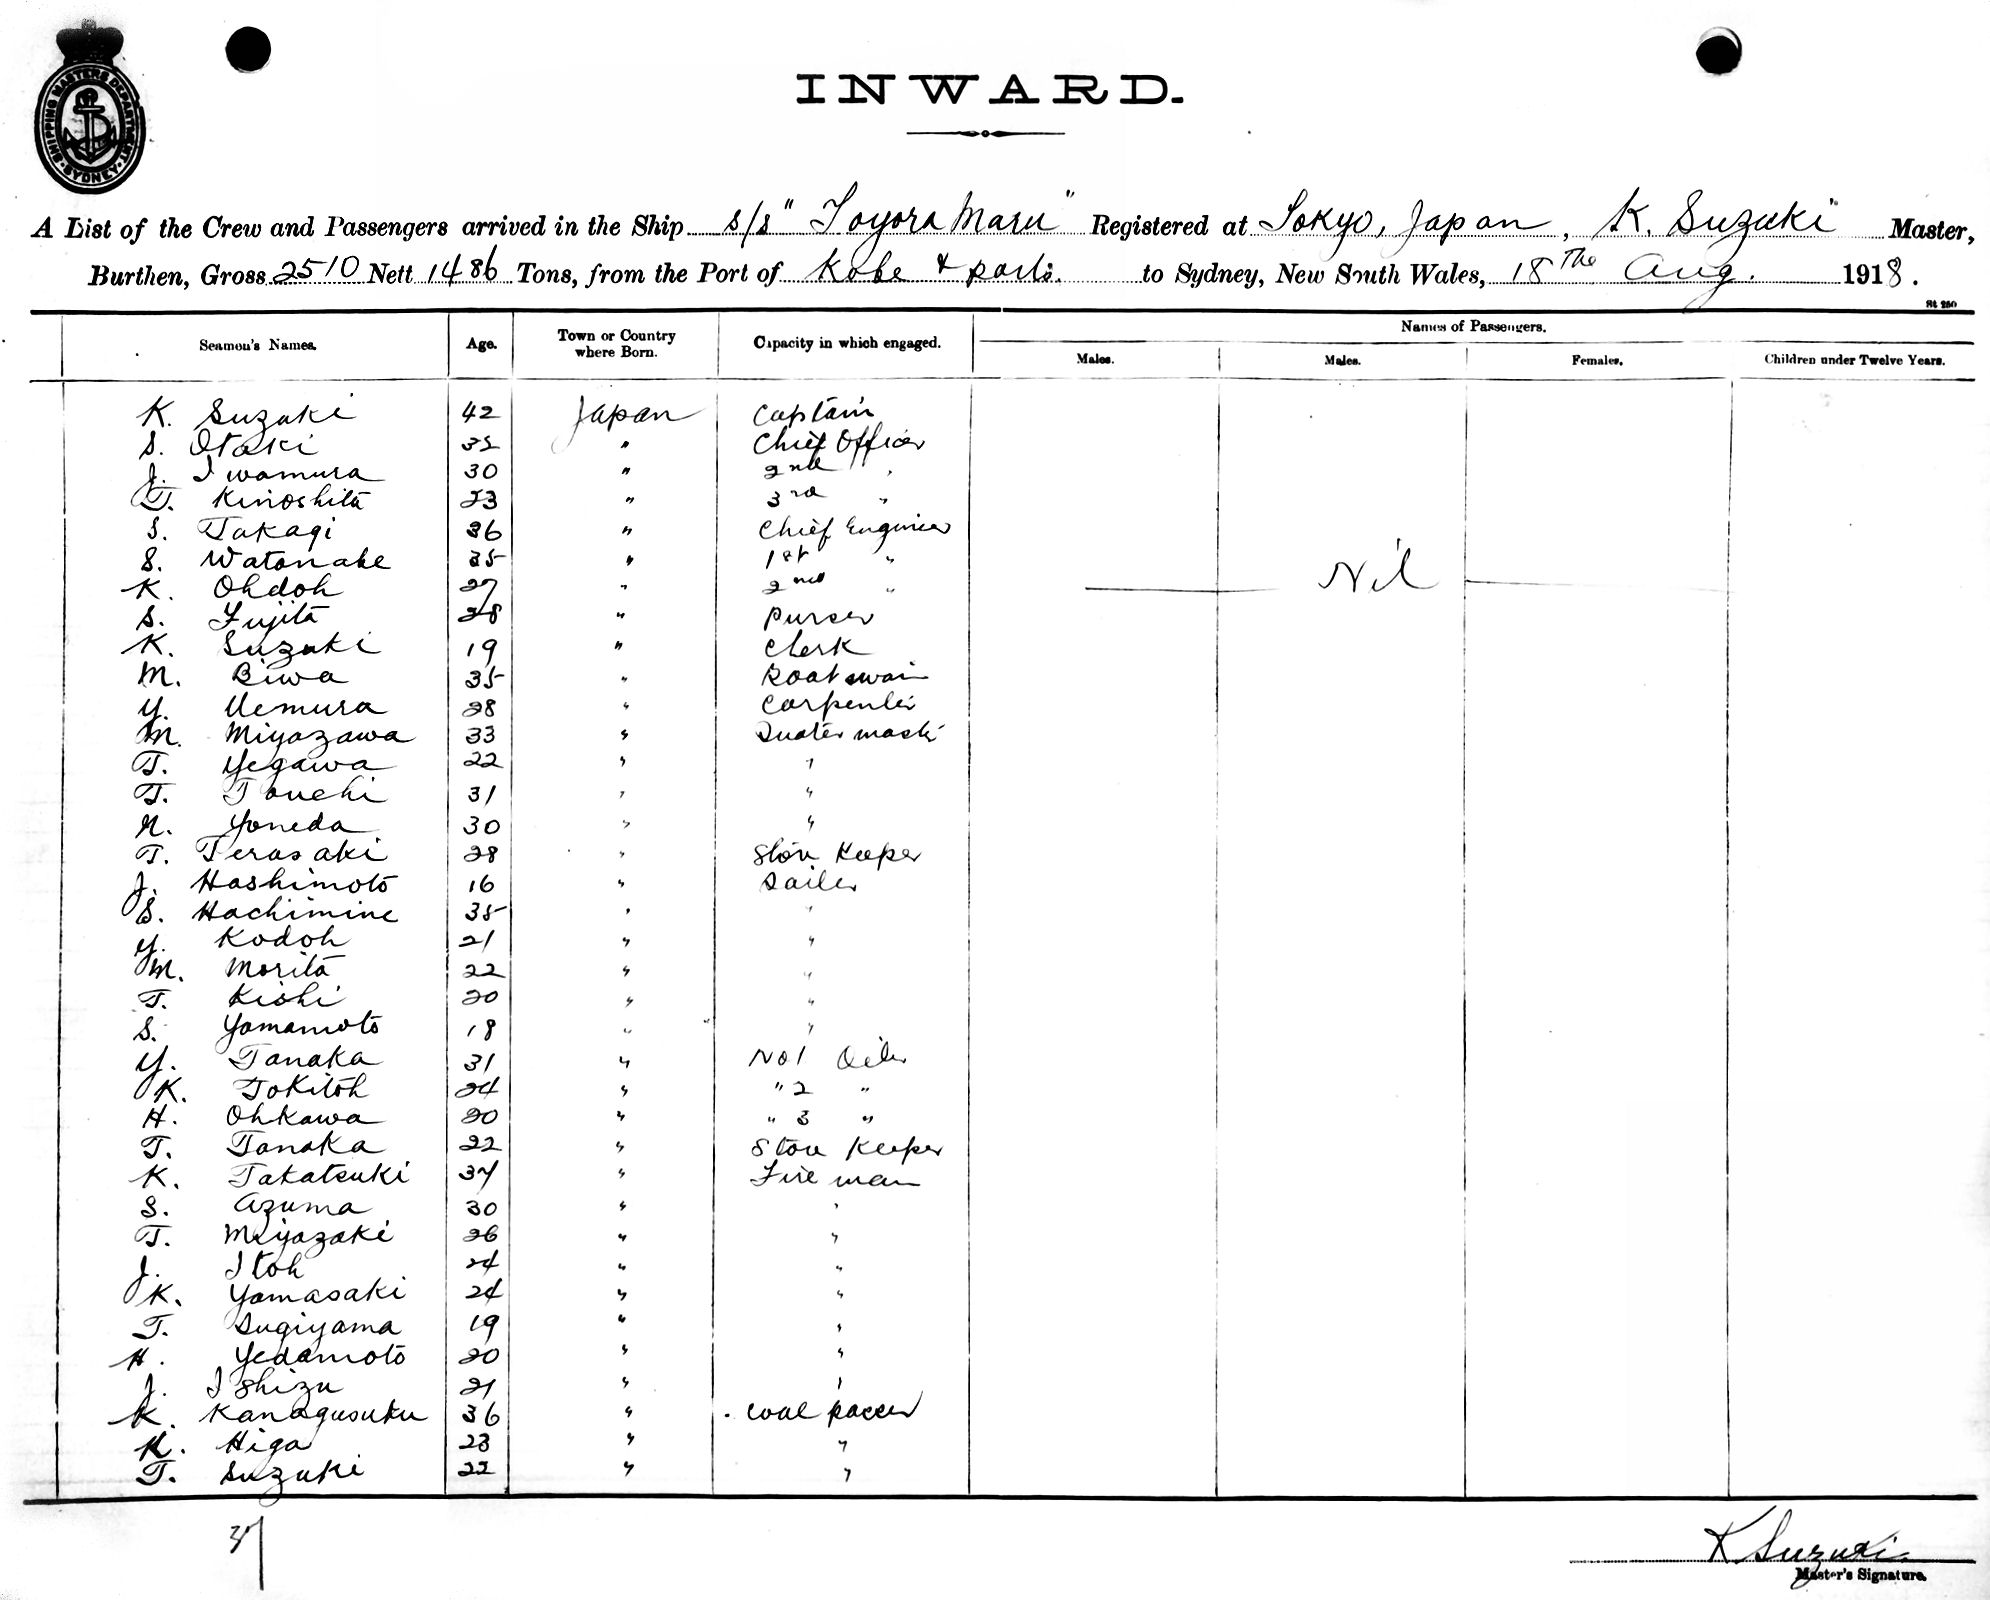 SHIPPING MASTERS DEPARTMENT
SYDNEY
INWARD.
A List of the Crew and Passengers arrived in the Ship s/s "Toyora Maru" Registered at Tokyo, Japan, K. Suzuki Master,
Burthen, Gross 2510 Nett 1486 Tons, from the Port of Kobe & ports. to Sydney, New South Wales, 18 The Aug. 1918.
St 250
Seamen's Names. Age. Town or Country where Born. Capacity in which engaged. Names of Passengers.
Males. Males. Females. Children under Twelve Years.
K. Suzuki 42 Japan Captain
S. Otaki 32 " Chief Officer
J. Iwamura 30 " 2nd "
T. Kinoshita 23 " 3rd "
S. Takagi 36 " Chief Engineer
S. Watanabe 35 " 1st "
K. Ohdoh 27 " 2nd "
Nil
S. Fujita 28 " Purser
K. Suzuki 19 " Clerk
M. Biwa 35 " Boatswain
Y. Uemura 28 " Carpenter
M. Miyazawa 33 " Quater mast
T. Yegawa 22 " "
T. Touchi 31 " "
N. Yoneda 30 " "
T. Terasaki 28 " Store Keeper
J. Hashimoto 16 " Sailer
S. Hachimine 35 " "
Y. Kodoh 21 " "
M. Morita 22 " "
T. Kishi 20 " "
S. Yamamoto 18 " "
Y. Tanaka 31 " No 1 Oiler
K. Tokitoh 24 " " 2 "
H. Ohkawa 20 " " 3 "
T. Tanaka 22 " Store Keeper
K. Takatsuki 37 " Fire man
S. Azuma 30 " "
T. Miyazaki 26 " "
J. Itoh 24 " "
K. Yamasaki 24 " "
T. Sugiyama 19 " "
H. Yedamoto 20 " "
J. Ishizu 21 " "
K. Kanagusuku 36 " Coal passer
K. Higa 23 " "
T. Suzuki 22 " "
37
K Suzuki
Master's Signature.